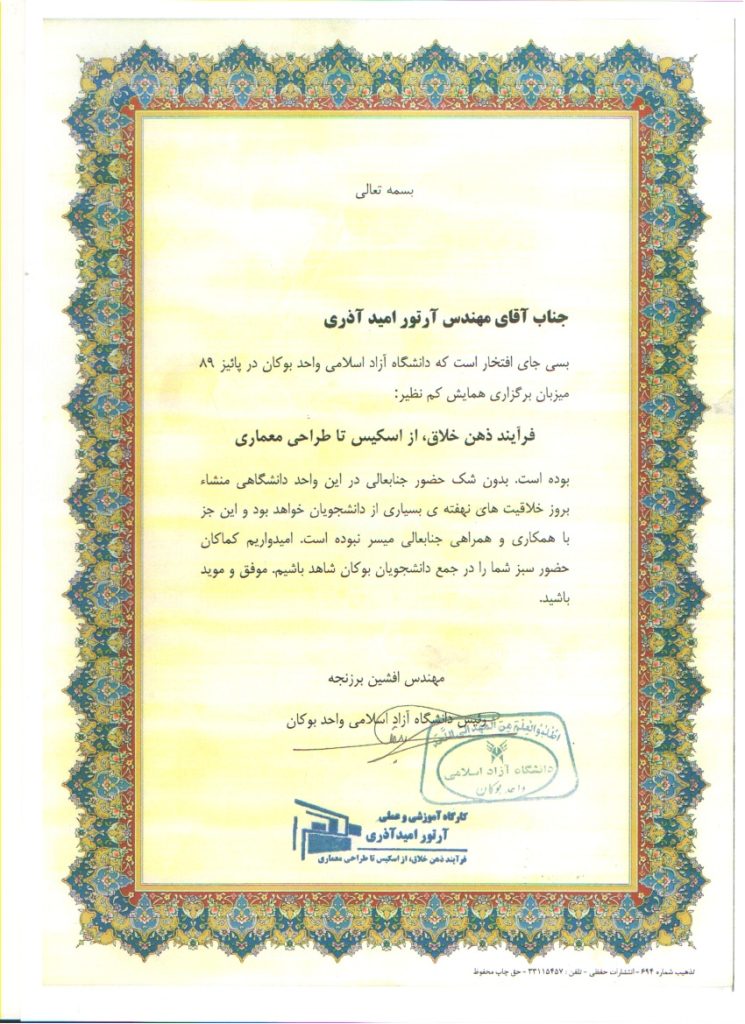 بسمه تعالی
جناب آقای مهندس آرتور امید آذری
بسی جای افتخار است که دانشگاه آزاد اسلامی واحد بوکان در پائیز ۸۹
میزبان برگزاری همایش کم نظیر:
فرآیند ذهن خلاق، از اسکیس تا طراحی معماری
بوده است. بدون شک حضور جنابعالی در این واحد دانشگاهی منشاء
بروز خلاقیت های نهفته ی بسیاری از دانشجویان خواهد بود و این جز
با همکاری و همراهی جنابعالی میسر نبوده است. امیدواریم کماکان
حضور سبز شما را در جمع دانشجویان بوکان شاهد باشیم. موفق و موید
باشید.
مهندس افشین برزنجه
رئیس دانشگاه آزاد اسلامی واحد بوکان
اطلبوا العلم من المهد الی اللحد
دانشگاه آزاد اسلامی
واحد بوکان
کارگاه آموزشی و عملی
آرتور امیدآذری
فرآیند ذهن خلاق، از اسکیس تا طراحی معماری
تذهیب شماره ۶۹۴ - انتشارات حفظی - تلفن: ۳۳۱۱۵۴۵۷ - حق چاپ محفوظ